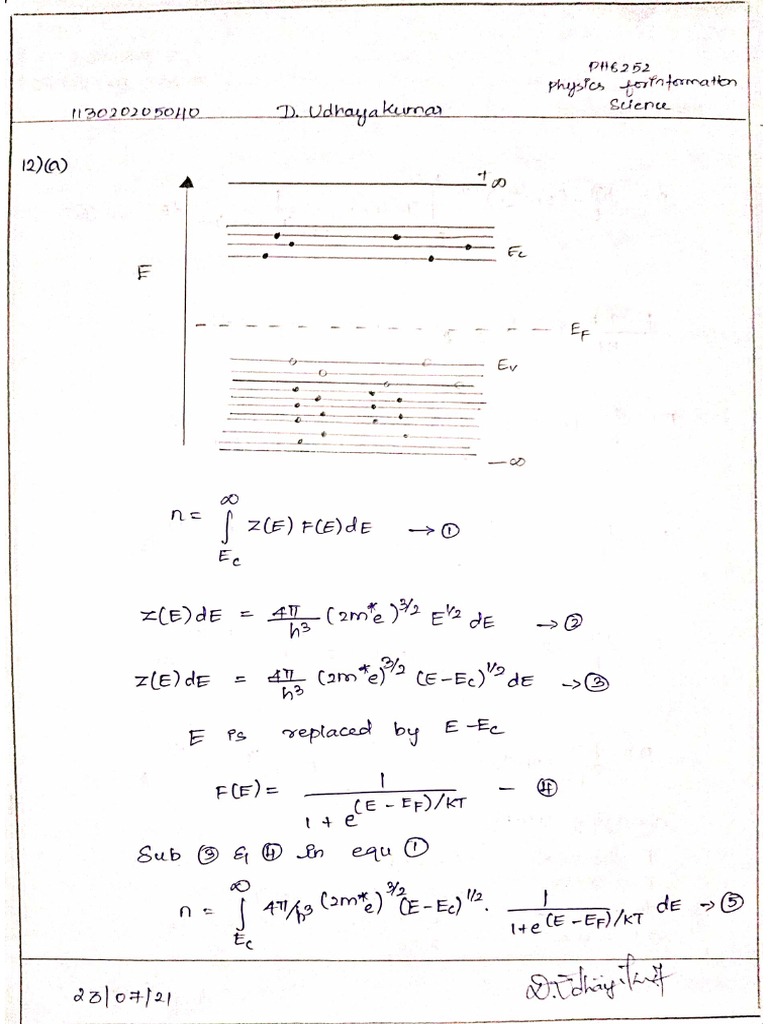 PH6252
Physics for Information
Science
113020205040 D. Udhayakumar
12)(a)
+∞
Ec
E
EF
Ev
-∞
n = ∫ Ec ∞ Z(E) F(E) dE → ①
Z(E) dE = 4π/h³ (2m*e)^3/2 E^1/2 dE → ②
Z(E) dE = 4π/h³ (2m*e)^3/2 (E-Ec)^1/2 dE → ③
E is replaced by E-Ec
F(E) = 1 / 1 + e^(E - EF)/KT - ④
Sub ③ & ④ in equ ①
n = ∫ Ec ∞ 4π/h³ (2m*e)^3/2 (E-Ec)^1/2 . 1 / 1+e^(E - EF)/KT dE → ⑤
23/07/21